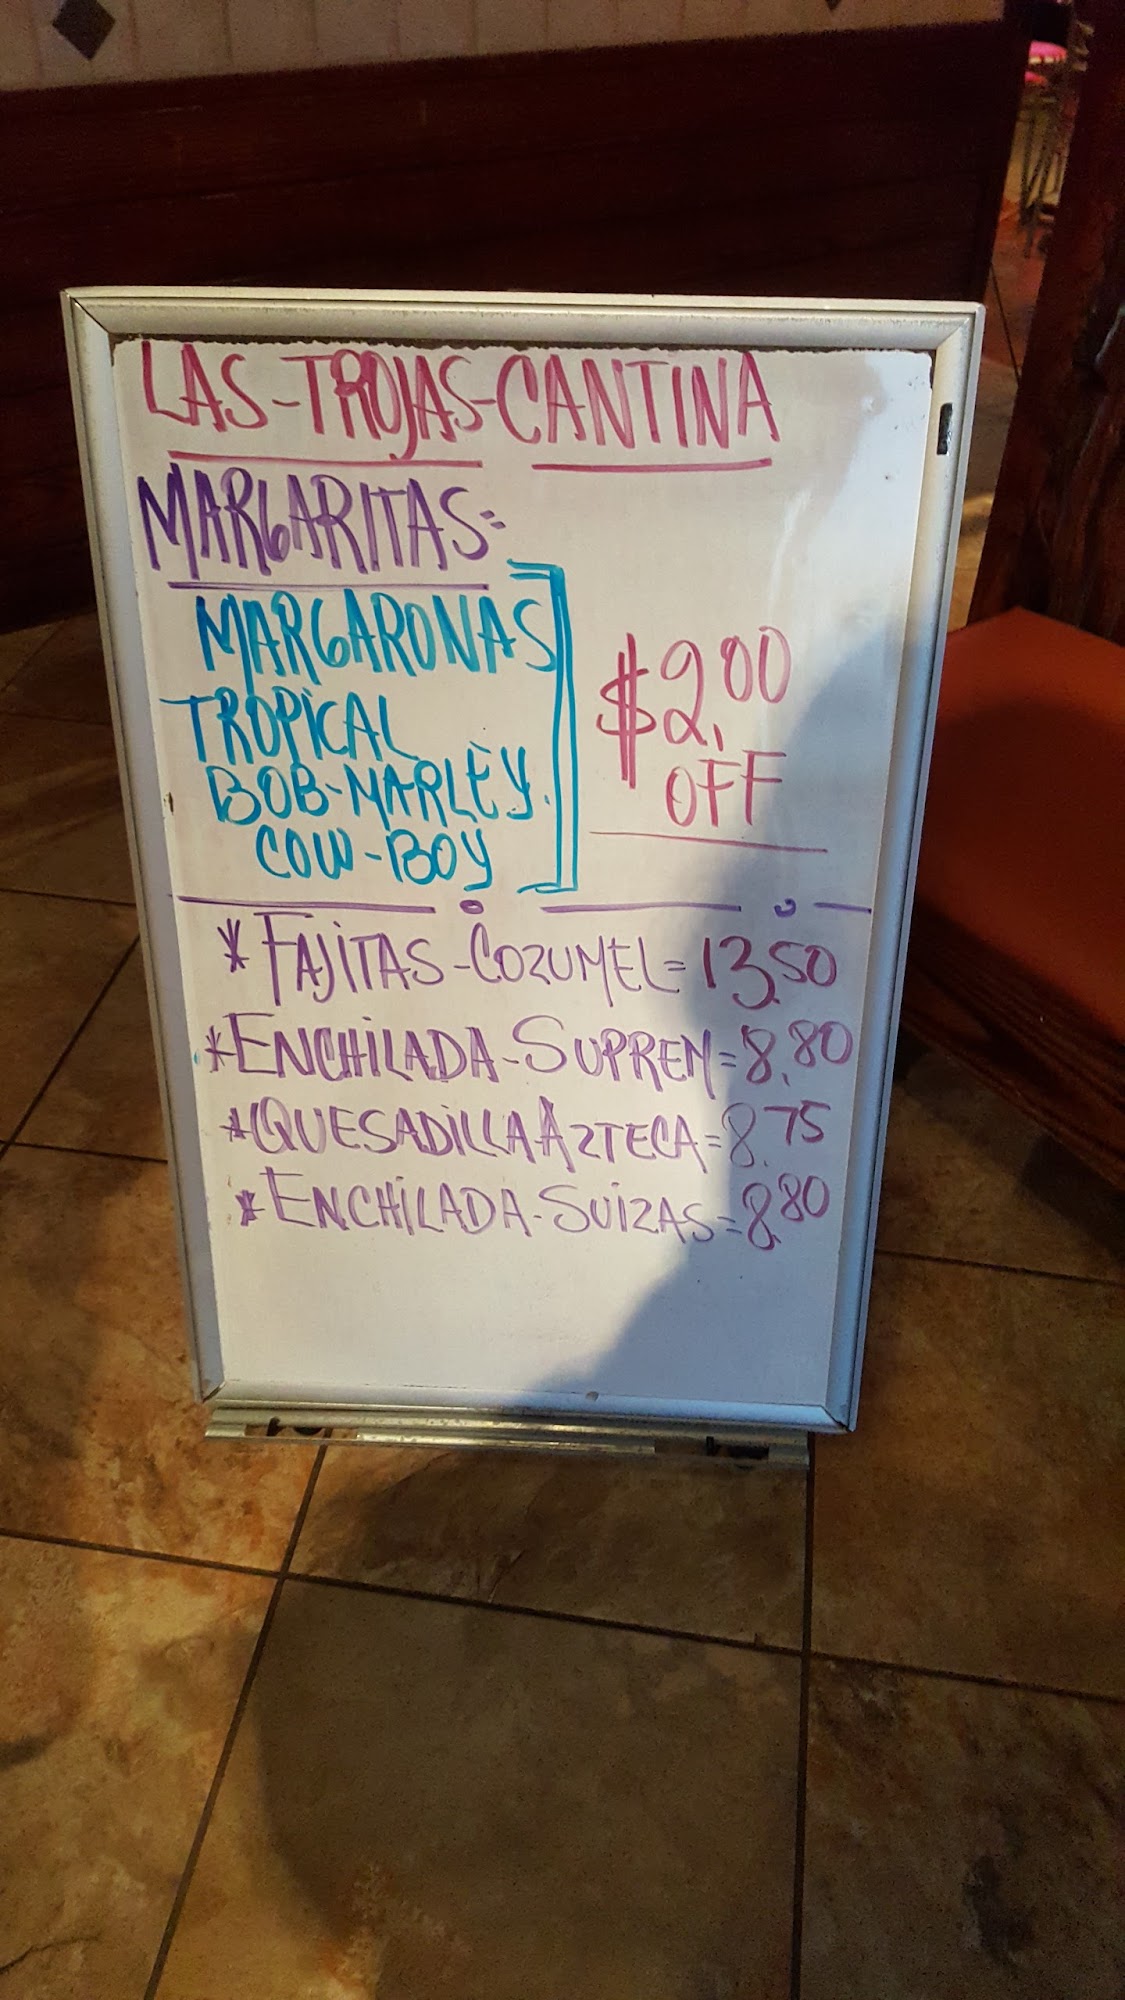 LAS-TROJAS-CANTINA
MARGARITAS=
MARGARONAS
TROPICAL
BOB-MARLEY.
COW-BOY
$2.00
OFF
*FAJITAS-COZUMEL=13.50
*ENCHILADA-SUPREM=8.80
*QUESADILLA AZTECA=8.75
*ENCHILADA-SUIZAS=8.80